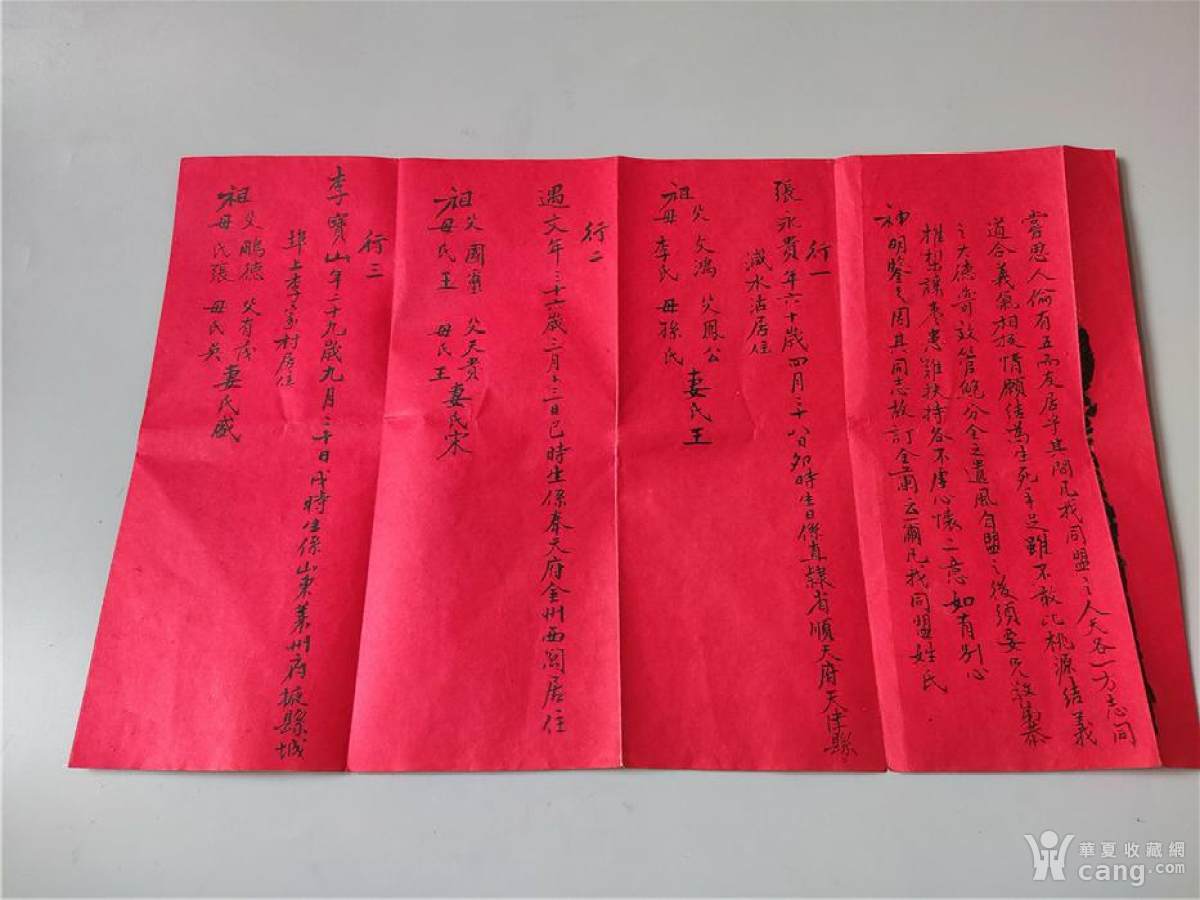 嘗思人倫有五而友居乎其間凡我同盟之人天各一方志同
道合義氣相投情願結為生死手足雖不敢比桃源結義
之大德竊效管鮑分金之遺風自盟之後須要兄敬弟恭
推梨讓棗患難扶持各不虛心懷二意如有別心
神明鑒之因其同志故訂金蘭云爾凡我同盟姓氏
行一
張永貴年六十歲四月二十八日卯時生日係直隸省順天府天津縣
鹹水沽居住
祖父文鴻 父鳳公
祖母李氏 母孫氏 妻氏王
行二
遇文年三十六歲二月十三日巳時生係奉天府金州西閣居住
祖父國璽 父天貴
祖母氏王 母氏王 妻氏宋
行三
李寶山年二十九歲九月二十日戌時生係山東萊州府掖縣城
埠上李家村居住
祖父鵬德 父有茂
祖母氏張 母氏吳 妻氏盛
華夏收藏網
cang.com